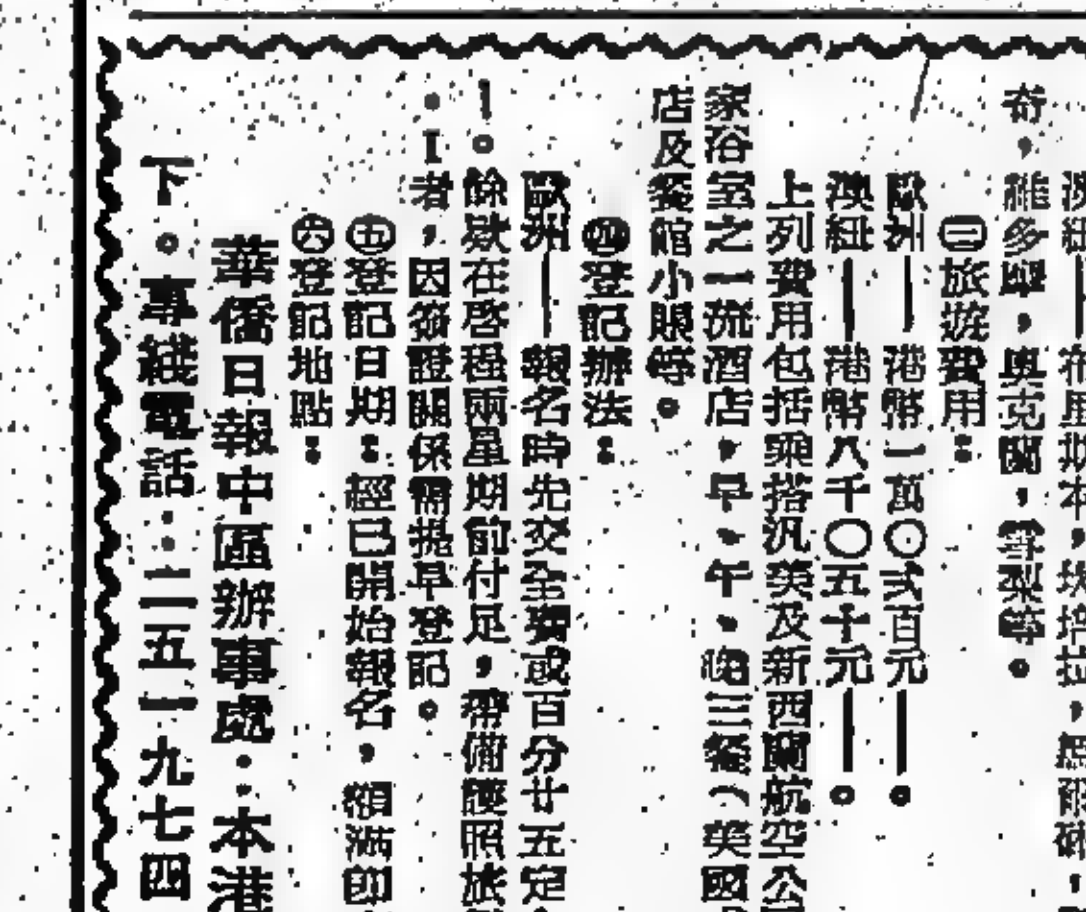 澳紐━布里斯本，坎培拉，墨爾砵，
奇，維多嶧，奧克蘭，雪梨等。
㊂旅遊費用：
歐洲━港幣一萬〇弍百元━。
澳紐━港幣八千〇五十元━。
上列費用包括乘搭汎美及新西蘭航空公
家浴室之一流酒店，早、午、晚三餐（美國
店及餐館小賬等。
㊃登記辦法：
歐洲━報名時先交全費或百分廿五定
。餘欵在啓程兩星期前付足，帶備護照旅
者，因簽證關係需提早登記。
㊄登記日期：經已開始報名，額滿即
㊅登記地點：
華僑日報中區辦事處：本港
下。專綫電話：二五一九七四